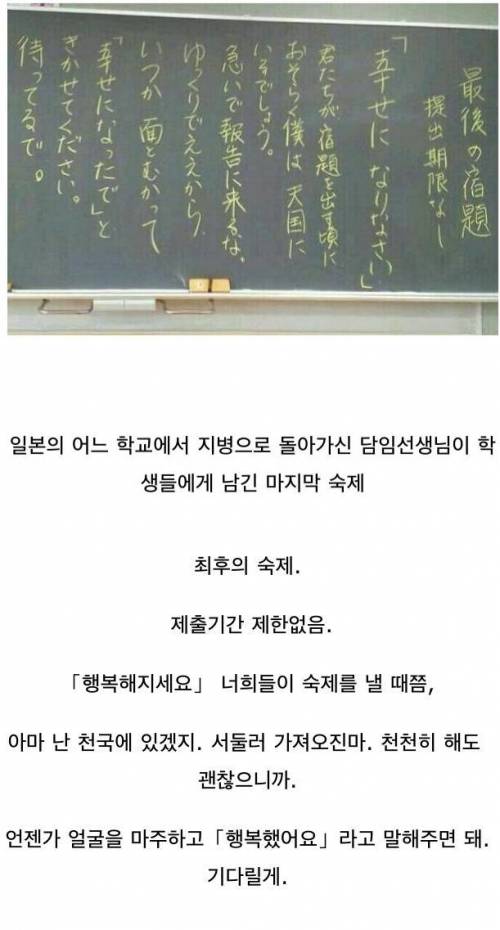 最後の宿題
提出期限なし
「幸せになりなさい」
君たちが宿題を出す頃に
おそらく僕は天国に
いるでしょう。
急いで報告に来るな。
ゆっくりでええから
いつか面とむかって
「幸せになったで」と
きかせてください。
待ってるで。
일본의 어느 학교에서 지병으로 돌아가신 담임선생님이 학
생들에게 남긴 마지막 숙제
최후의 숙제.
제출기간 제한없음.
「행복해지세요」 너희들이 숙제를 낼 때쯤,
아마 난 천국에 있겠지. 서둘러 가져오진마. 천천히 해도
괜찮으니까.
언젠가 얼굴을 마주하고「행복했어요」라고 말해주면 돼.
기다릴게.